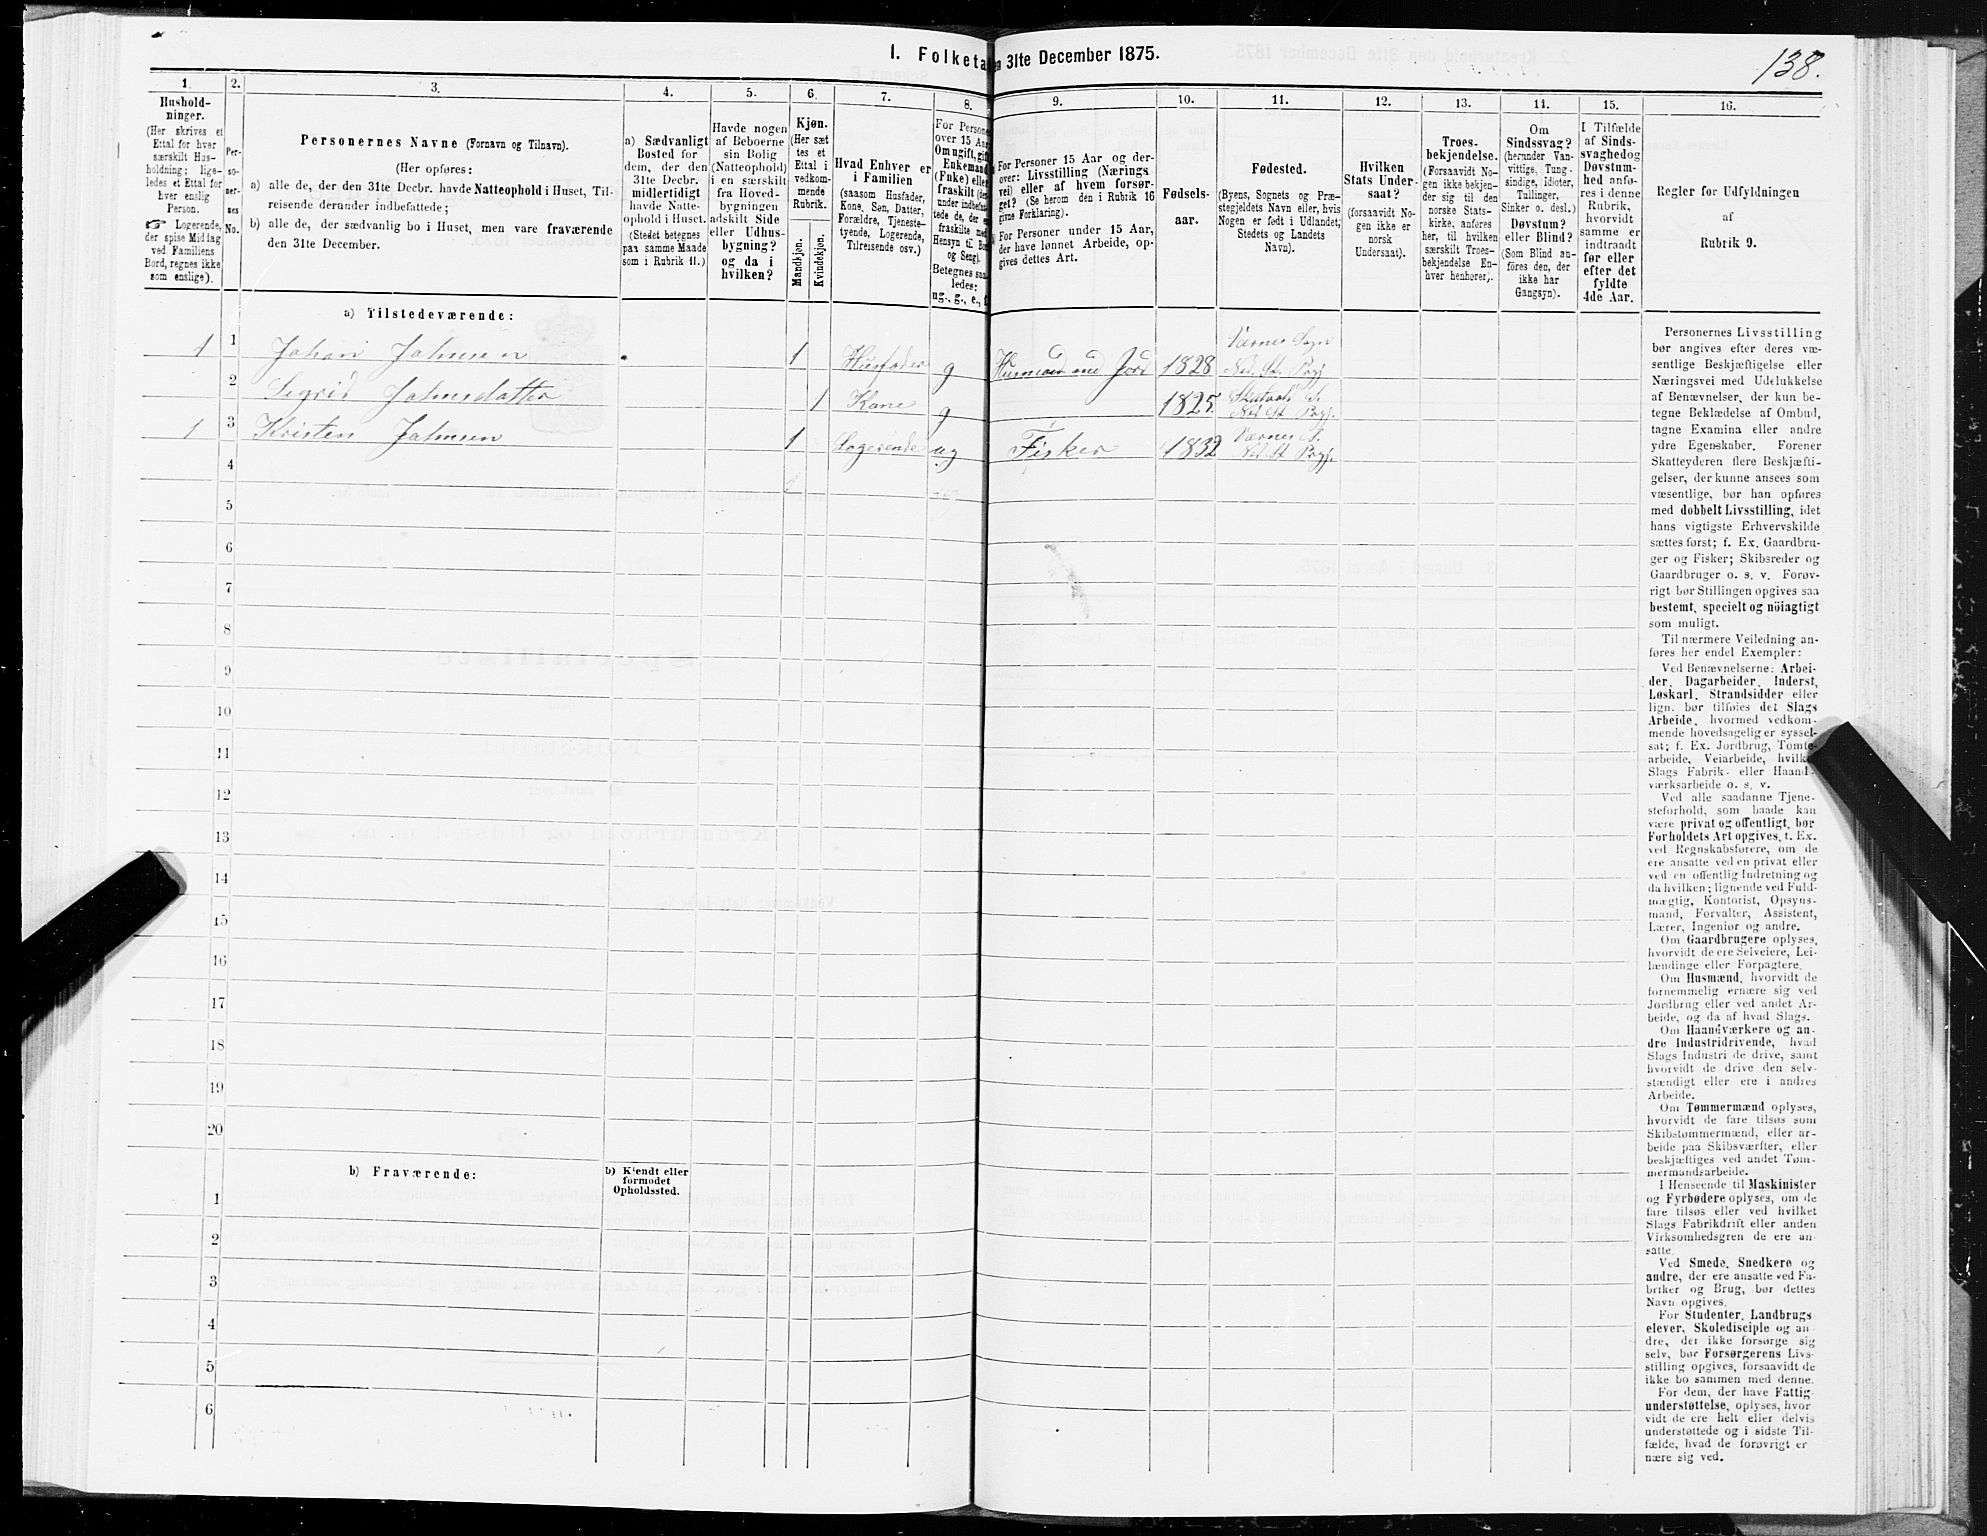 1. Folketa en 31te December 1875.
138.
1.
2.
3.
4.
5.
6.
7.
8.
9.
10.
11.
12.
13.
14.
15.
16.
Hushold-
ninger.
(Her skrives et
Ettal for hver
særskilt Hus-
holdning; lige-
ledes et Ettal for
hver enslig
Person.
☞ Logerende,
der spise Middag
ved Familiens
Bord, regnes ikke
som enslige).
Per-
so-
ner-
nes
No.
Personernes Navne (Fornavn og Tilnavn).
(Her opføres:
a) alle de, der den 31te Decbr. havde Natteophold i Huset, Til-
reisende derunder indbefattede;
b) alle de, der sædvanlig bo i Huset, men vare fraværende
den 31te December.
a) Sædvanligt
Bosted for
dem, der den
31te Decbr.
midlertidigt
havde Natte-
ophold i Huset.
(Stedet betegnes
paa samme Maade
som i Rubrik 11.)
Havde nogen
af Beboerne
sin Bolig
(Natteophold)
i en særskilt
fra Hoved-
bygningen
adskilt Side
eller Udhus-
bygning?
og da i
hvilken?
Kjøn.
(Her sæt
tes et
Ettal i
vedkom-
mende
Rubrik.
Mandkjøn.
Kvindekjøn.
Hvad Enhver er
i Familien
(saasom Husfader,
Kone, Søn, Datter,
Forældre, Tjeneste-
tyende, Logerende,
Tilreisende
osv.)
For Persone
over 15 Aar
Om ugift, gift
Enkemand
(Fnke) eller
fraskilt (der
under indbefat-
tede de, der e
fraskilte med
Hensyn til Bo
og Seng).
Betegnes saa
ledes:
ug., g., e., f.
For Personer 15 Aar og der-
over: Livsstilling (Nærings
vei) eller af hvem forsør-
get? (Se herom den i Rubrik 16
givne Forklaring).
For Personer under 15 Aar,
der have lønnet Arbeide, op-
gives dettes Art.
Fødsels-
aar.
Fødested.
(Byens, Sognets og Præ-
stegjeldets Navn eller, hvis
Nogen er født i Udlandet,
Stedets og Landets
Navn).
Hvilken
Stats Under-
saat?
(forsaavidt No-
gen ikke er
norsk
Undersaat).
Troes-
bekjendelse.
(Forsaavidt No-
gen ikke bekjen-
der sig til den
norske Stats-
kirke, anføres
her, til hvilken
særskilt Troes-
bekjendelse En-
hver henhører).
Om
Sindssvag?
(herunder Van-
vittige, Tung-
sindige, Idioter,
Tullinger,
Sinker o. desl.)
Døvstum?
eller Blind?
(Som Blind an-
føres den, der
ikke har
Gangsyn).
I Tilfælde
af Sinds-
svaghed og
Døvstum-
hed anfø-
res i denne
Rubrik,
hvorvidt
samme er
indtraadt
før eller
efter det
fyldte
4de Aar.
Regler for Udfyldningen
af
Rubrik 9.
a) Tilstedeværende:
1 1 Johan Johnsen 1 Husfader g Husmand med Jord 1828 Værnes Sogn
Ned. St. Prgj.
2 Sigrid Johnsdatter 1 Kone g 1825.
Ned St Prgj.
1 3 Kristen Johnsen 1 Logerende ug Fisker 1832 Værnes S.
Ned St Prgj.
4
5
6
7
8
9
10
11
12
13
14
15
16
17
18
19
20
b) Fraværende:
b) Kjendt eller
formodet
Opholdssted.
1
2
3
4
5
6
Personernes Livsstilling
bør angives efter deres væ-
sentlige Beskjæftigelse eller
Næringsvei med Udelukkelse
af Benævnelser, der kun be-
tegne Beklædelse af Ombud,
tagne Examina eller andre
ydre Egenskaber. Forener
Skatteyderen flere Beskjæfti-
gelser, der kunne ansees som
væsentlige, bør han opføres
med dobbelt Livsstilling, idet
hans vigtigste Erhvervskilde
sættes først; f. Ex. Gaardbru-
ger og Fisker; Skibsreder og
Gaardbruger o. s. v. Forøv-
rigt bør Stillingen opgives saa
bestemt, specielt og nöiagtigt
som muligt.
Til nærmere Veiledning an-
føres her endel Exempler:
Ved Benævnelserne: Arbei-
der, Dagarbeider, Inderst,
Løskarl, Strandsidder eller
lign. bør tilføies det Slags
Arbeide, hvormed vedkom-
mende hovedsagelig er syssel-
sat; f. Ex. Jordbrug, Tomte-
arbeide, Veiarbeide, hvilke
Slags Fabrik- eller Haand-
værksarbeide o. s. v.
Ved alle saadanne Tjene-
steforhold, som baade kan
være privat og offentligt, bør
Forholdets Art opgives, t. Ex.
ved Regnskabsførere, om de
ere ansatte ved en privat eller
ved en offentlig Indretning og
da hvilken; lignende ved Fuld-
mægtig, Kontorist, Opsyns-
mand, Forvalter, Assistent,
Lærer, Ingeniør og andre.
Om Gaardbrugere oplyses,
hvorvidt de ere Selveiere, Lei-
lændinge eller Forpagtere.
Om Husmænd, hvorvidt de
fornemmelig ernære sig ved
Jordbrug eller ved andet Ar-
beide, og da af hvad Slags.
Om Haandværkere og an-
dre Industridrivende, hvad
Slags Industri de drive, samt
hvorvidt de drive den selv-
stændigt eller ere i andres
Arbeide.
Om Tømmermænd oplyses,
hvorvidt de fare tilsøs som
Skibstømmermænd, eller ar-
beide paa Skibsværfter, eller
beskjæftiges ved andet Tøm-
mermandsarbeide.
I Henseende til Maskinister
og Fyrbødere oplyses, om de
fare tilsøs eller ved hvilket
Slags Fabrikdrift eller anden
Virksomhedsgren de ere an-
satte.
Ved Smede, Snedkere og
andre, der ere ansatte ved Fa-
briker og Brug, bør dettes
Navn opgives.
For Studenter, Landbrugs
elever, Skoledisciple og an
dre, der ikke forsørge sig
selv, bør Forsørgerens Livs-
stilling opgives, forsaavidt de
ikke bo sammen med denne.
For dem, der have Fattig
understøttelse, oplyses, hvor
vidt de ere helt eller delvis
understøttede og i sidste Til-
fælde, hvad de forøvrigt er
nære sig ved.